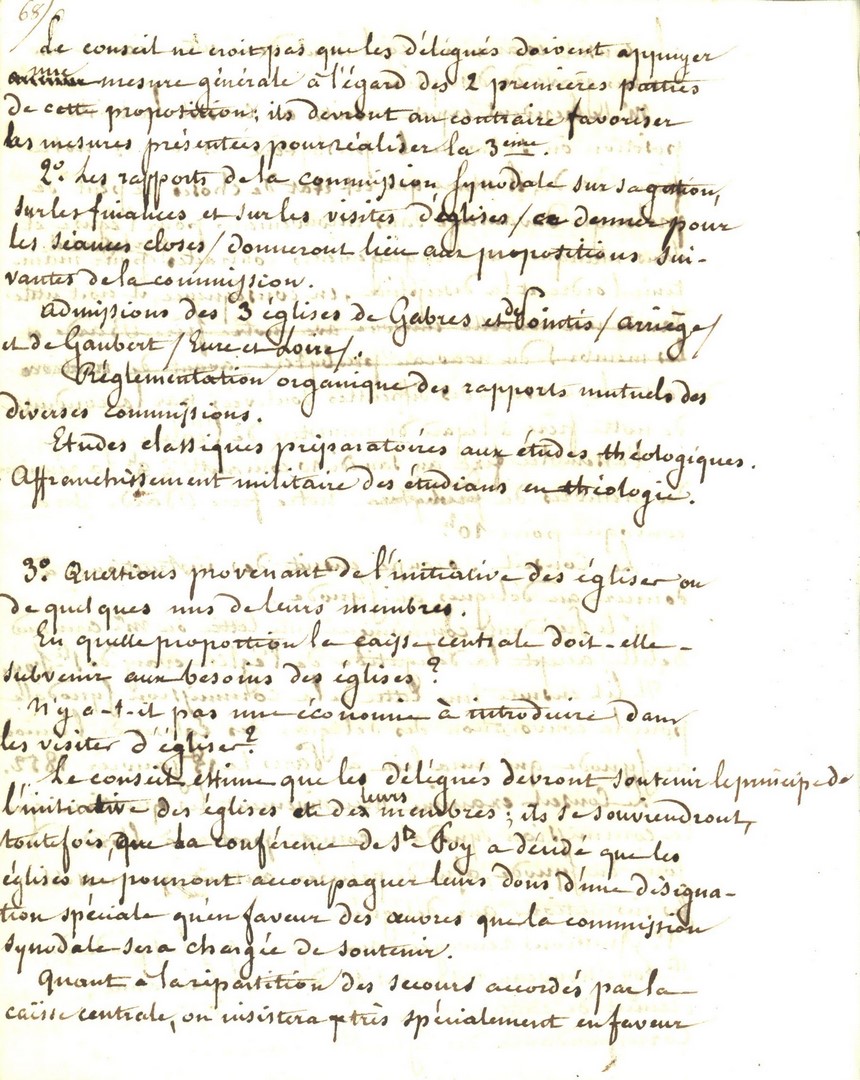 68/
Le conseil ne croit pas que les délégués doivent appuyer
une mesure générale à l'égard des 2 premières parties
de cette proposition; ils devront au contraire favoriser
les mesures présentées pour réaliser la 3ème.
2º. Les rapports de la commission synodale sur sa gestion,
sur les finances et sur les visites d'églises / ce dernier pour
les séances closes / donneront lieu aux propositions sui-
vantes de la commission.
Admissions des 3 églises de Gabres et de Pointis / arriège /
et de Gaubert / Eure et Loire /.
Réglementation organique des rapports mutuels des
diverses commissions.
Etudes classiques préparatoires aux études théologiques.
Affranchissement militaire des étudians en théologie.
3º. Questions provenant de l'initiative des églises ou
de quelques uns de leurs membres.
En quelle proportion la caisse centrale doit-elle
subvenir aux besoins des églises?
N'y a-t-il pas une économie à introduire dans
les visites d'églises?
Le conseil estime que les délégués devront soutenir le principe de
l'initiative des églises et de leurs membres; ils se souviendront,
toutefois, que la conférence de Ste Foy a décidé que les
églises ne pourront accompagner leurs dons d'une désigna-
tion spéciale qu'en faveur des œuvres que la commission
synodale sera chargée de soutenir.
Quant à la répartition des secours accordés par la
caïsse centrale, on insistera très spécialement en faveur